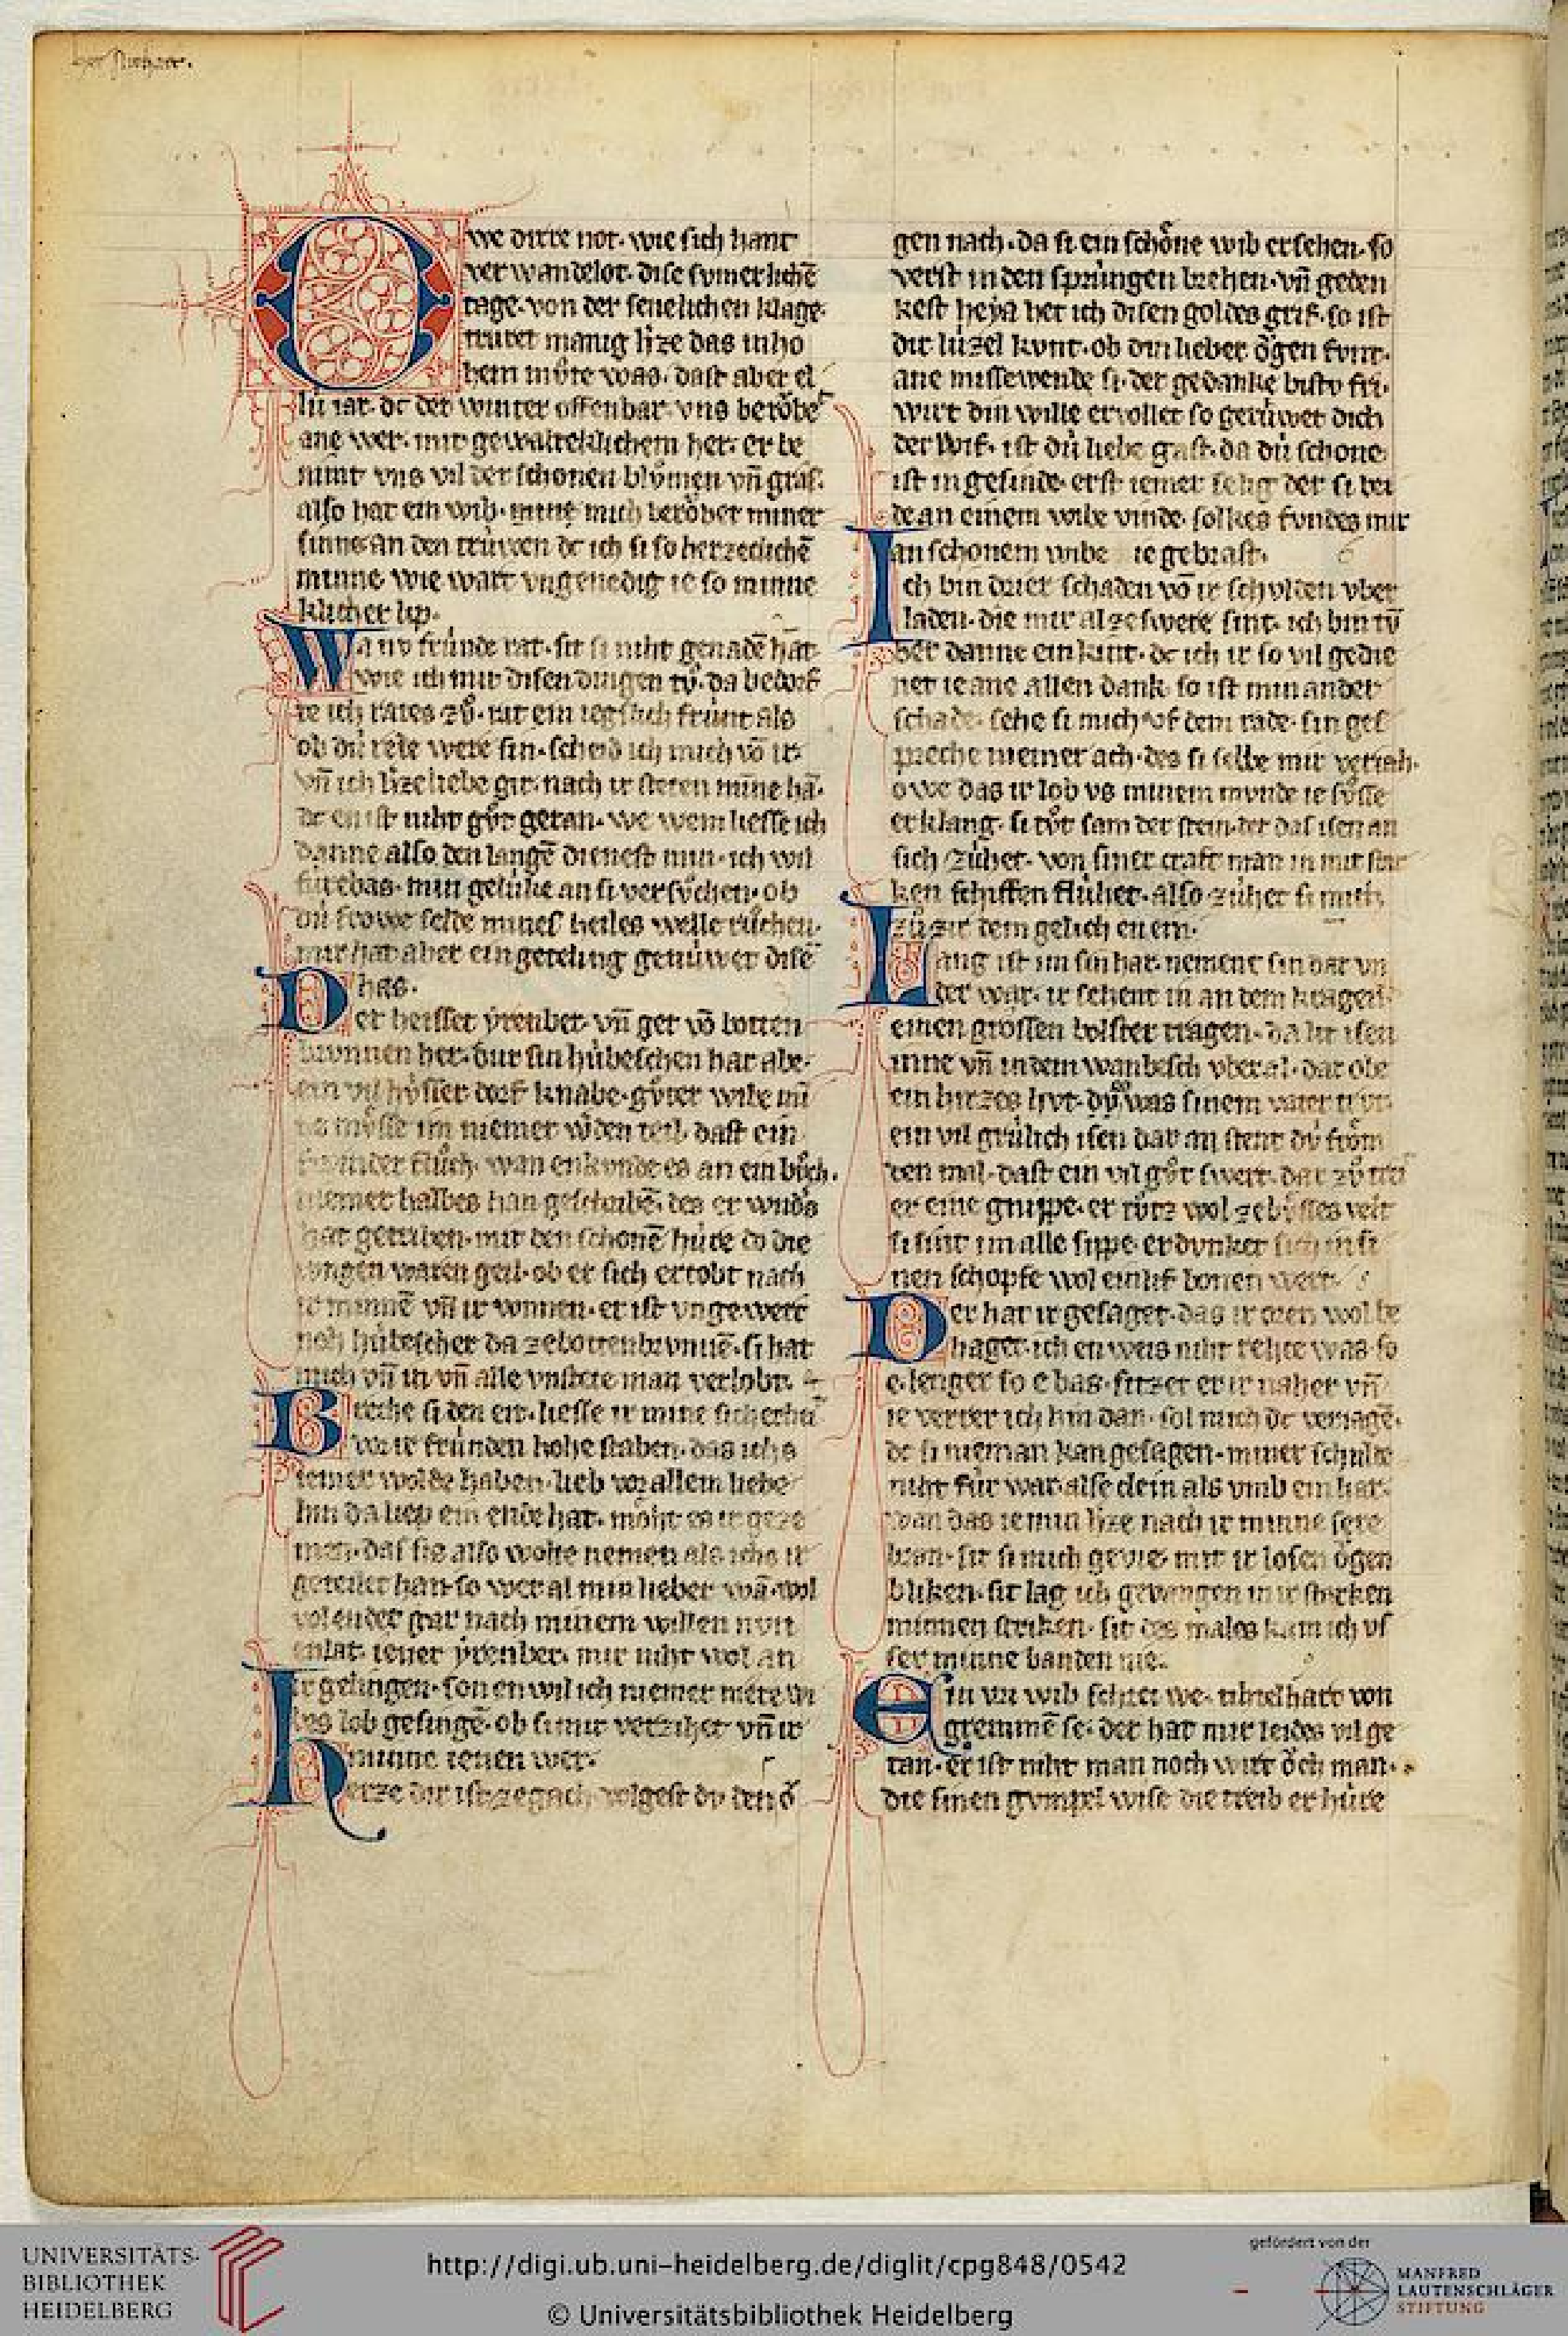 her Nithart.
Owe dirre not. wie sich hant
verwandelot. dise svmerlichē
tage. von der senelichen klage.
truret manig h̾ze das in ho
hem mv̊te was. dast aber el
lú iar. dc der winter offenbar. vns berǒbet
ane wer. mit gewalteklichem her. er be
nimt vns vil der schonen blv̊men vn̄ gras.
also hat ein wib. mine mich berǒbet miner
sinne an den trúwen dc ich si so herzeclichē
minne. wie wart vngenedig ie so minne
klicher lip.
Wa nv frúnde rat. sit si niht genadē hat.
wie ich mir disen dingen tv̊. da bedorf
te ich rates zv̊. rat ein iegslich frúnt als
ob dú rede were sin. scheid ich mich vō ir
vn̄ ich h̾ze liebe gir. nach ir steten mīne hā.
dc en ist niht gv̊t getan. we wem liesse ich
danne also den langē dienest min. ich wil
fúrebas. min gelúke an si versv̊chen. ob
dú frowe selde mines heiles welle rv̊chen.
mir hat aber ein geteling genúwet disē
has.
Der heisset ẏrenber. vn̄ get vō botten
brvnnen her. dur sin húbeschen har abe.
ein vil knabe. gv̊ter wibe
niemer wden teil. dast ein
flůch. wan en kvnde es an ein bůch.
niemer halbes han geschribē. des er wnd̾s
hat getriben. mit den schonē húte do die
iungen waren geil. ob er sich ertobt nach
ir minnē vn̄ ir winnen. er ist vngewert
noh húbescher da ze bottenbrvnnē. si hat
mich vn̄ in. vn̄ alle vnstete man verlobt.
Breche si den eit. liesse ir mine sicherheit
vō ir frúnden hohe staben. das ichs
iemer wolde haben. lieb vor allem liebe
hin da liep ein ende hat. mȯht es ir geze
men. das sis also wolte nemen als ichs ir
geteilet han. so wer al min lieber wā. wol
volendet gar nach minem willen nvn
enlat. iener ẏrenber. mir niht wol an
ir gelingen. son en wil ich niemer mere wi
bes lob gesingē. ob si mir verzihet vn̄ ir
minne ienen wer.
Herze dir ist ze gach volgest dv den ǒ
gen nach. da si ein schȯne wib ersehen. so
verst in den sprúngen brehen. vn̄ geden
kest heẏa het ich disen goldes grif. so ist
dir lúzel kvnt. ob din lieber ǒgen fvnt.
ane missewende si. der gedanke bistv fri.
wirt din wille ervollet so gerúwet dich
der wif. ist dú liebe gast. da dú schone
ist ingesinde. erst iemer selig der si bei
de an einem wibe vinde. solkes fvndes mir
an schonem wibe ie gebrast.
Ich bin drier schaden vō ir schvlden vber
laden. die mir al ze swere sint. ich bin tv̄
ber danne ein kint. dc ich ir so vil gedie
net ie ane allen dank. so ist min ander
schade. sehe si mich vf dem rade. sin ges
preche niemer ach. des si selbe mir veriah.
owe das ir lob vs minem mvnde ie sv̊sse
erklang. si tv̊t sam der stein. der das isen an
sich zúhet. von siner craft man in mit star
ken schiffen flúhet. also zúhet si mich
zů zir dem gelich en ein.
Lang ist im sin har. nement sin dar vn
der war. ir sehent in an dem kragen.
einen grossen bolster tragen. da lit isen
inne vn̄ in dem wanbesch vberal. dar obe
ein hirzes hvt. dv̊ was sinem vater trvt.
ein vil grúlich isen dar an stent dv from
den mal. dast ein vil gv̊t swert. dar zv̊ treit
er eine gnippe. er rv̊tz wol ze bv̊sses velt
si sint im alle sippe. er dvnket sich in si
nen schopfe wol einlif bonen wert.
Der hat ir gesaget. das ir oren wol be
haget. ich en weis niht rehte was. so
e. lenger so e bas. sitzet er ir naher vn̄
ie verrer ich hin dan. sol mich dc veriagē.
dc si nieman kan gesagen. miner schulde
niht fúr war. alse clein als vmb ein har.
wan das ie min h̾ze nach ir minne sere
bran. sit si mich gevie. mit ir losen ǒgen
bliken. sit lag ich gevangen in ir starken
minnen striken. sit des males kam ich vs
ser minne banden nie.
Ein vn wib schiet we. vihtelhart von
gremmē se. der hat mir leides vil ge
tan. er ist niht man noch wirt ǒch man.
die sinen gvmpel wise die treib er húre
UNIVERSITÄTS-
BIBLIOTHEK
HEIDELBERG
http://digi.ub.uni-heidelberg.de/diglit/cpg848/0542
© Universitätsbibliothek Heidelberg
gefördert von der
MANFRED
LAUTENSCHLÄGER
STIFTUNG